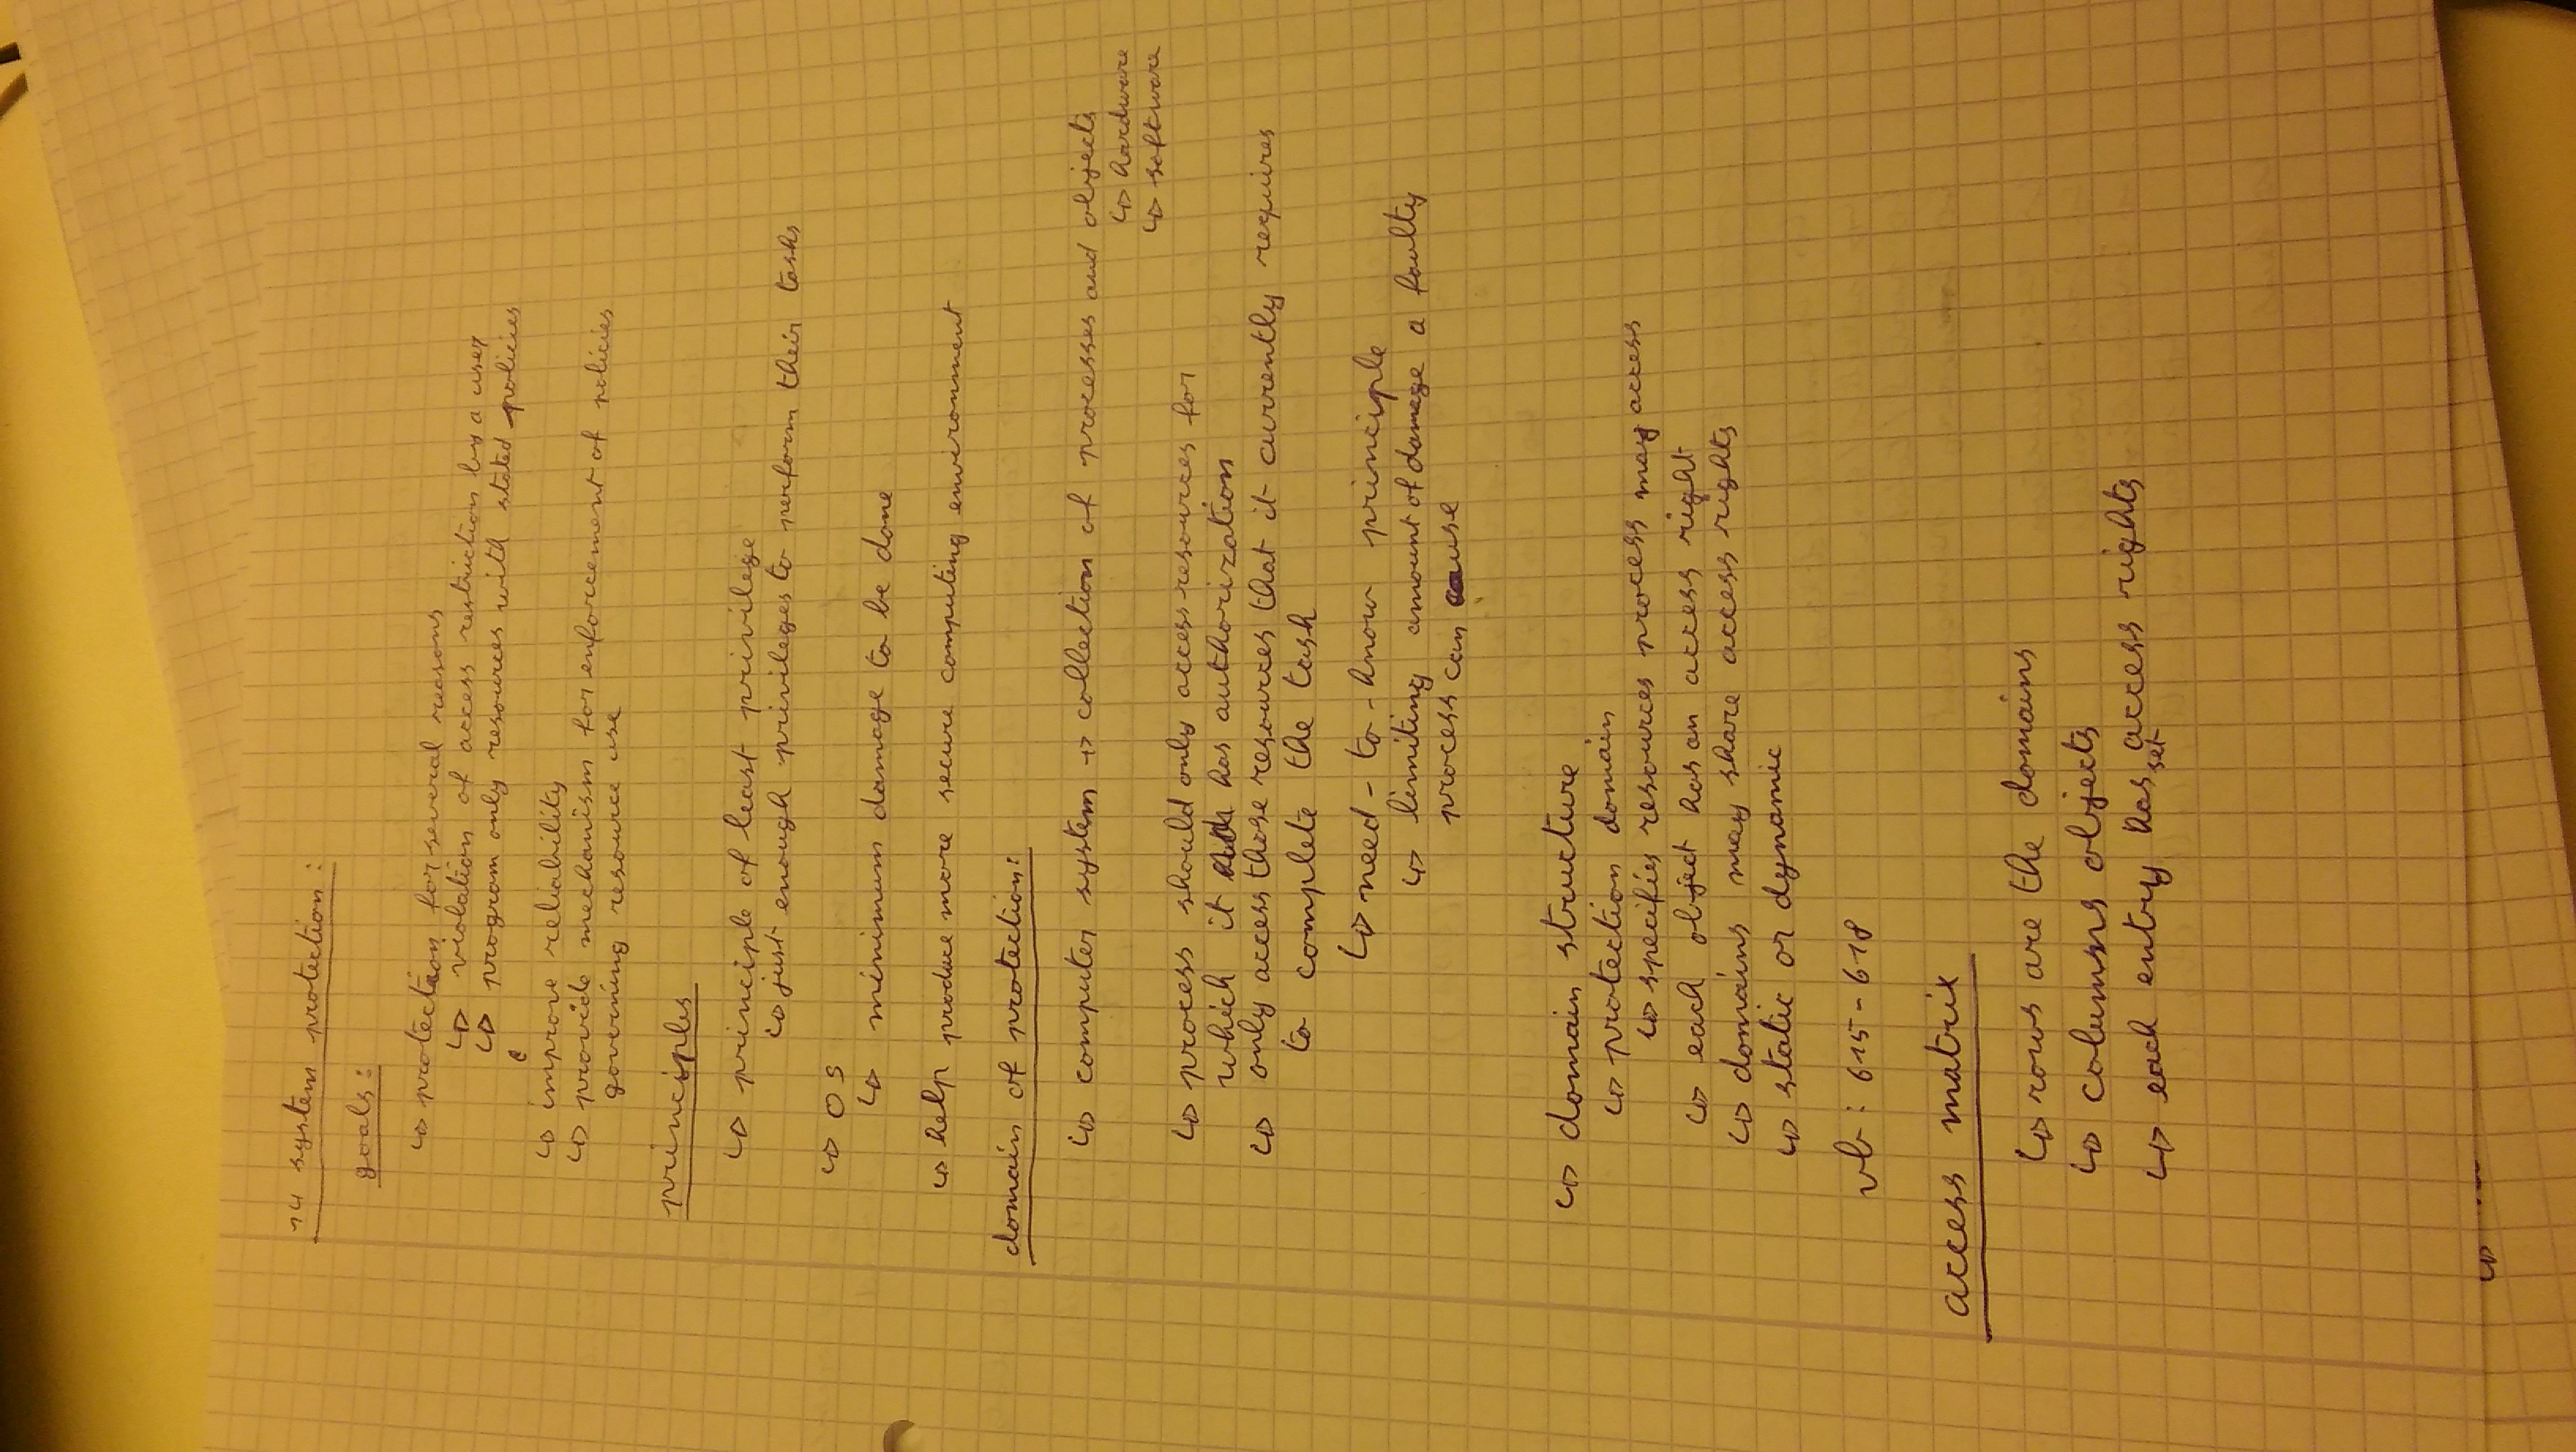 14 system protection:
goals:
↳ protection for several reasons
↳ violation of access restriction by a user
↳ program only resources with stated policies
↳ improve reliability
↳ provide mechanism for enforcement of policies
governing resource use
principles
↳ principle of least privilege
↳ just enough privileges to perform their tasks
↳ OS
↳ minimum damage to be done
↳ help produce more secure computing environment
domain of protection:
↳ computer system → collection of processes and objects
↳ hardware
↳ software
↳ process should only access resources for
which it has authorization
↳ only access those resources that it currently requires
to complete the task
↳ need-to-know principle
↳ limiting amount of damage a faulty
process can cause
↳ domain structure
↳ protection domain
↳ specifies resources process may access
↳ each object has an access right
↳ domains may share access rights
↳ static or dynamic
vb: 615-618
access matrix
↳ rows are the domains
↳ columns objects
↳ each entry has set access rights